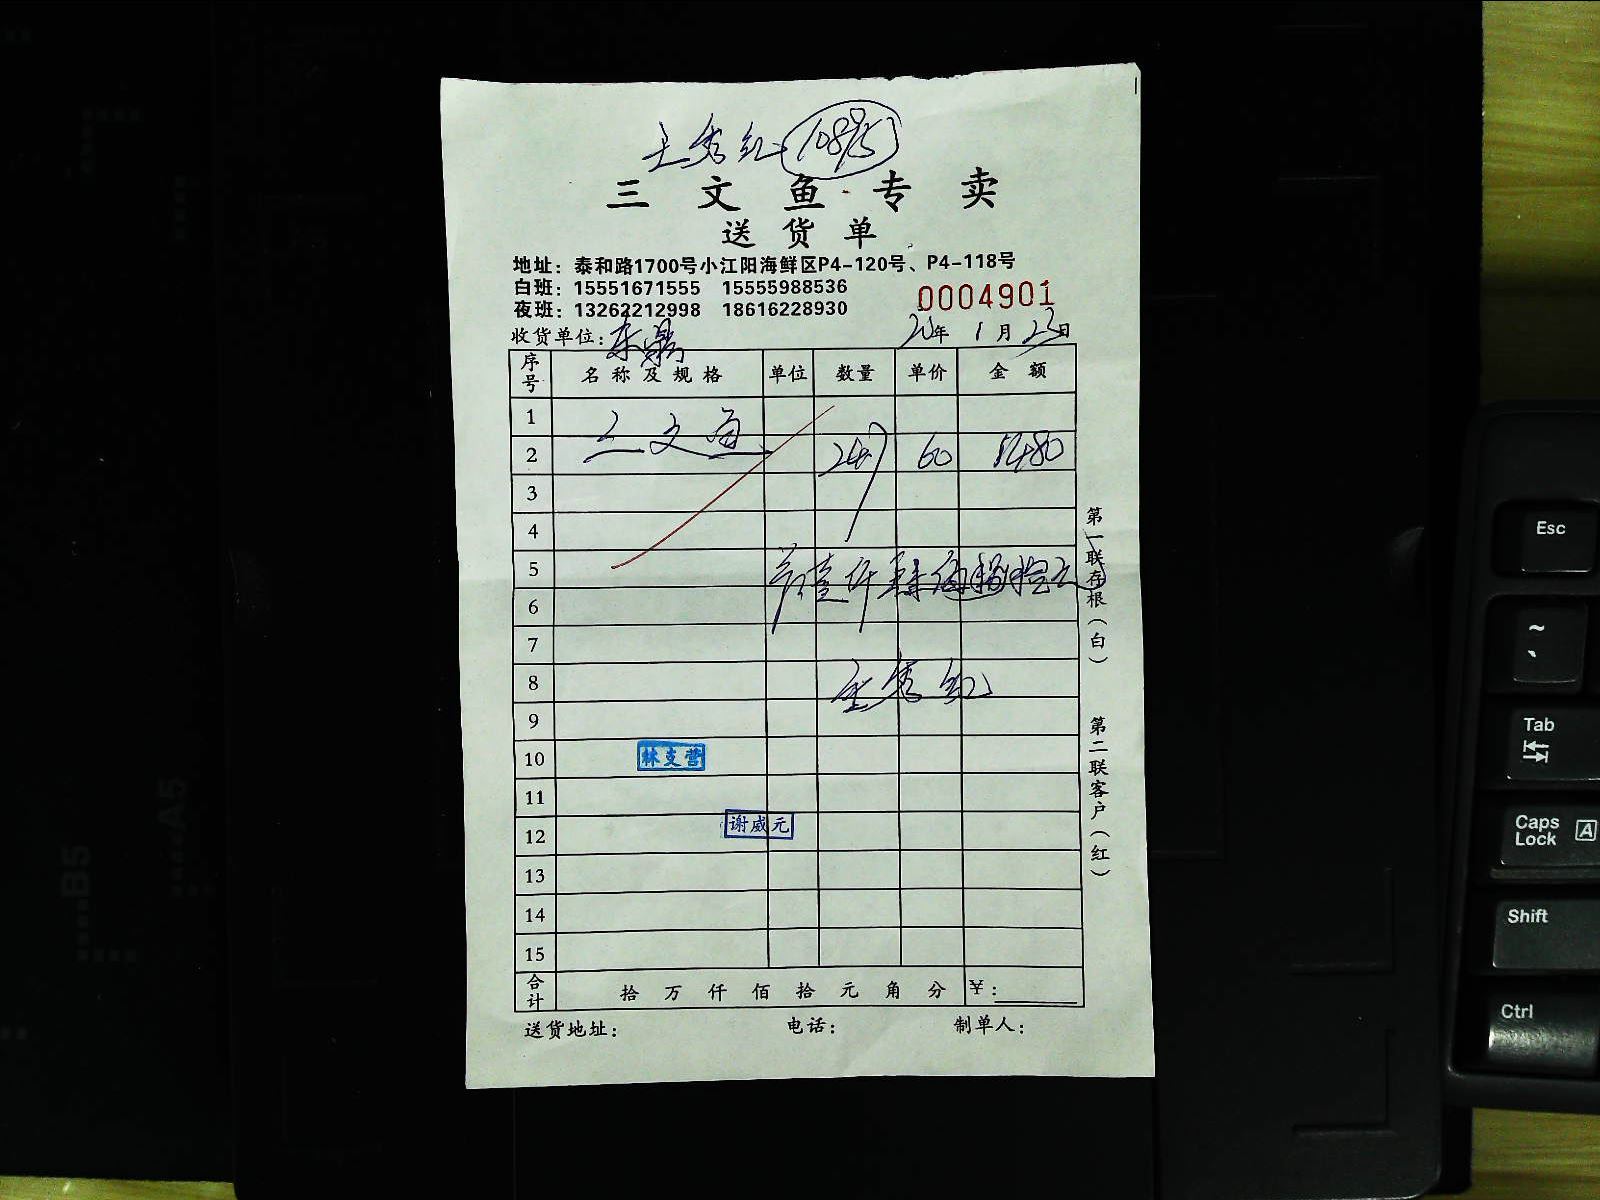 王秀红
三文鱼专卖
送货单
地址：泰和路1700号小江阳海鲜区P4-120号、P4-118号
白班：15551671555 15555988536
夜班：13262212998 18616228930
0004901
收货单位：东鼎
年 1月23日
序号 名称及规格 单位 数量 单价 金额
1 三文鱼
2 247 60 1480
3
4
5
6
7
8 王秀红
9
10 林支营
11
12 谢威元
13
14
15
合计 拾 万 仟 佰 拾 元 角 分 ¥：
送货地址： 电话： 制单人：
第一联存根（白）
第二联客户（红）
B5
A5
Esc
~
Tab
Caps Lock A
Shift
Ctrl